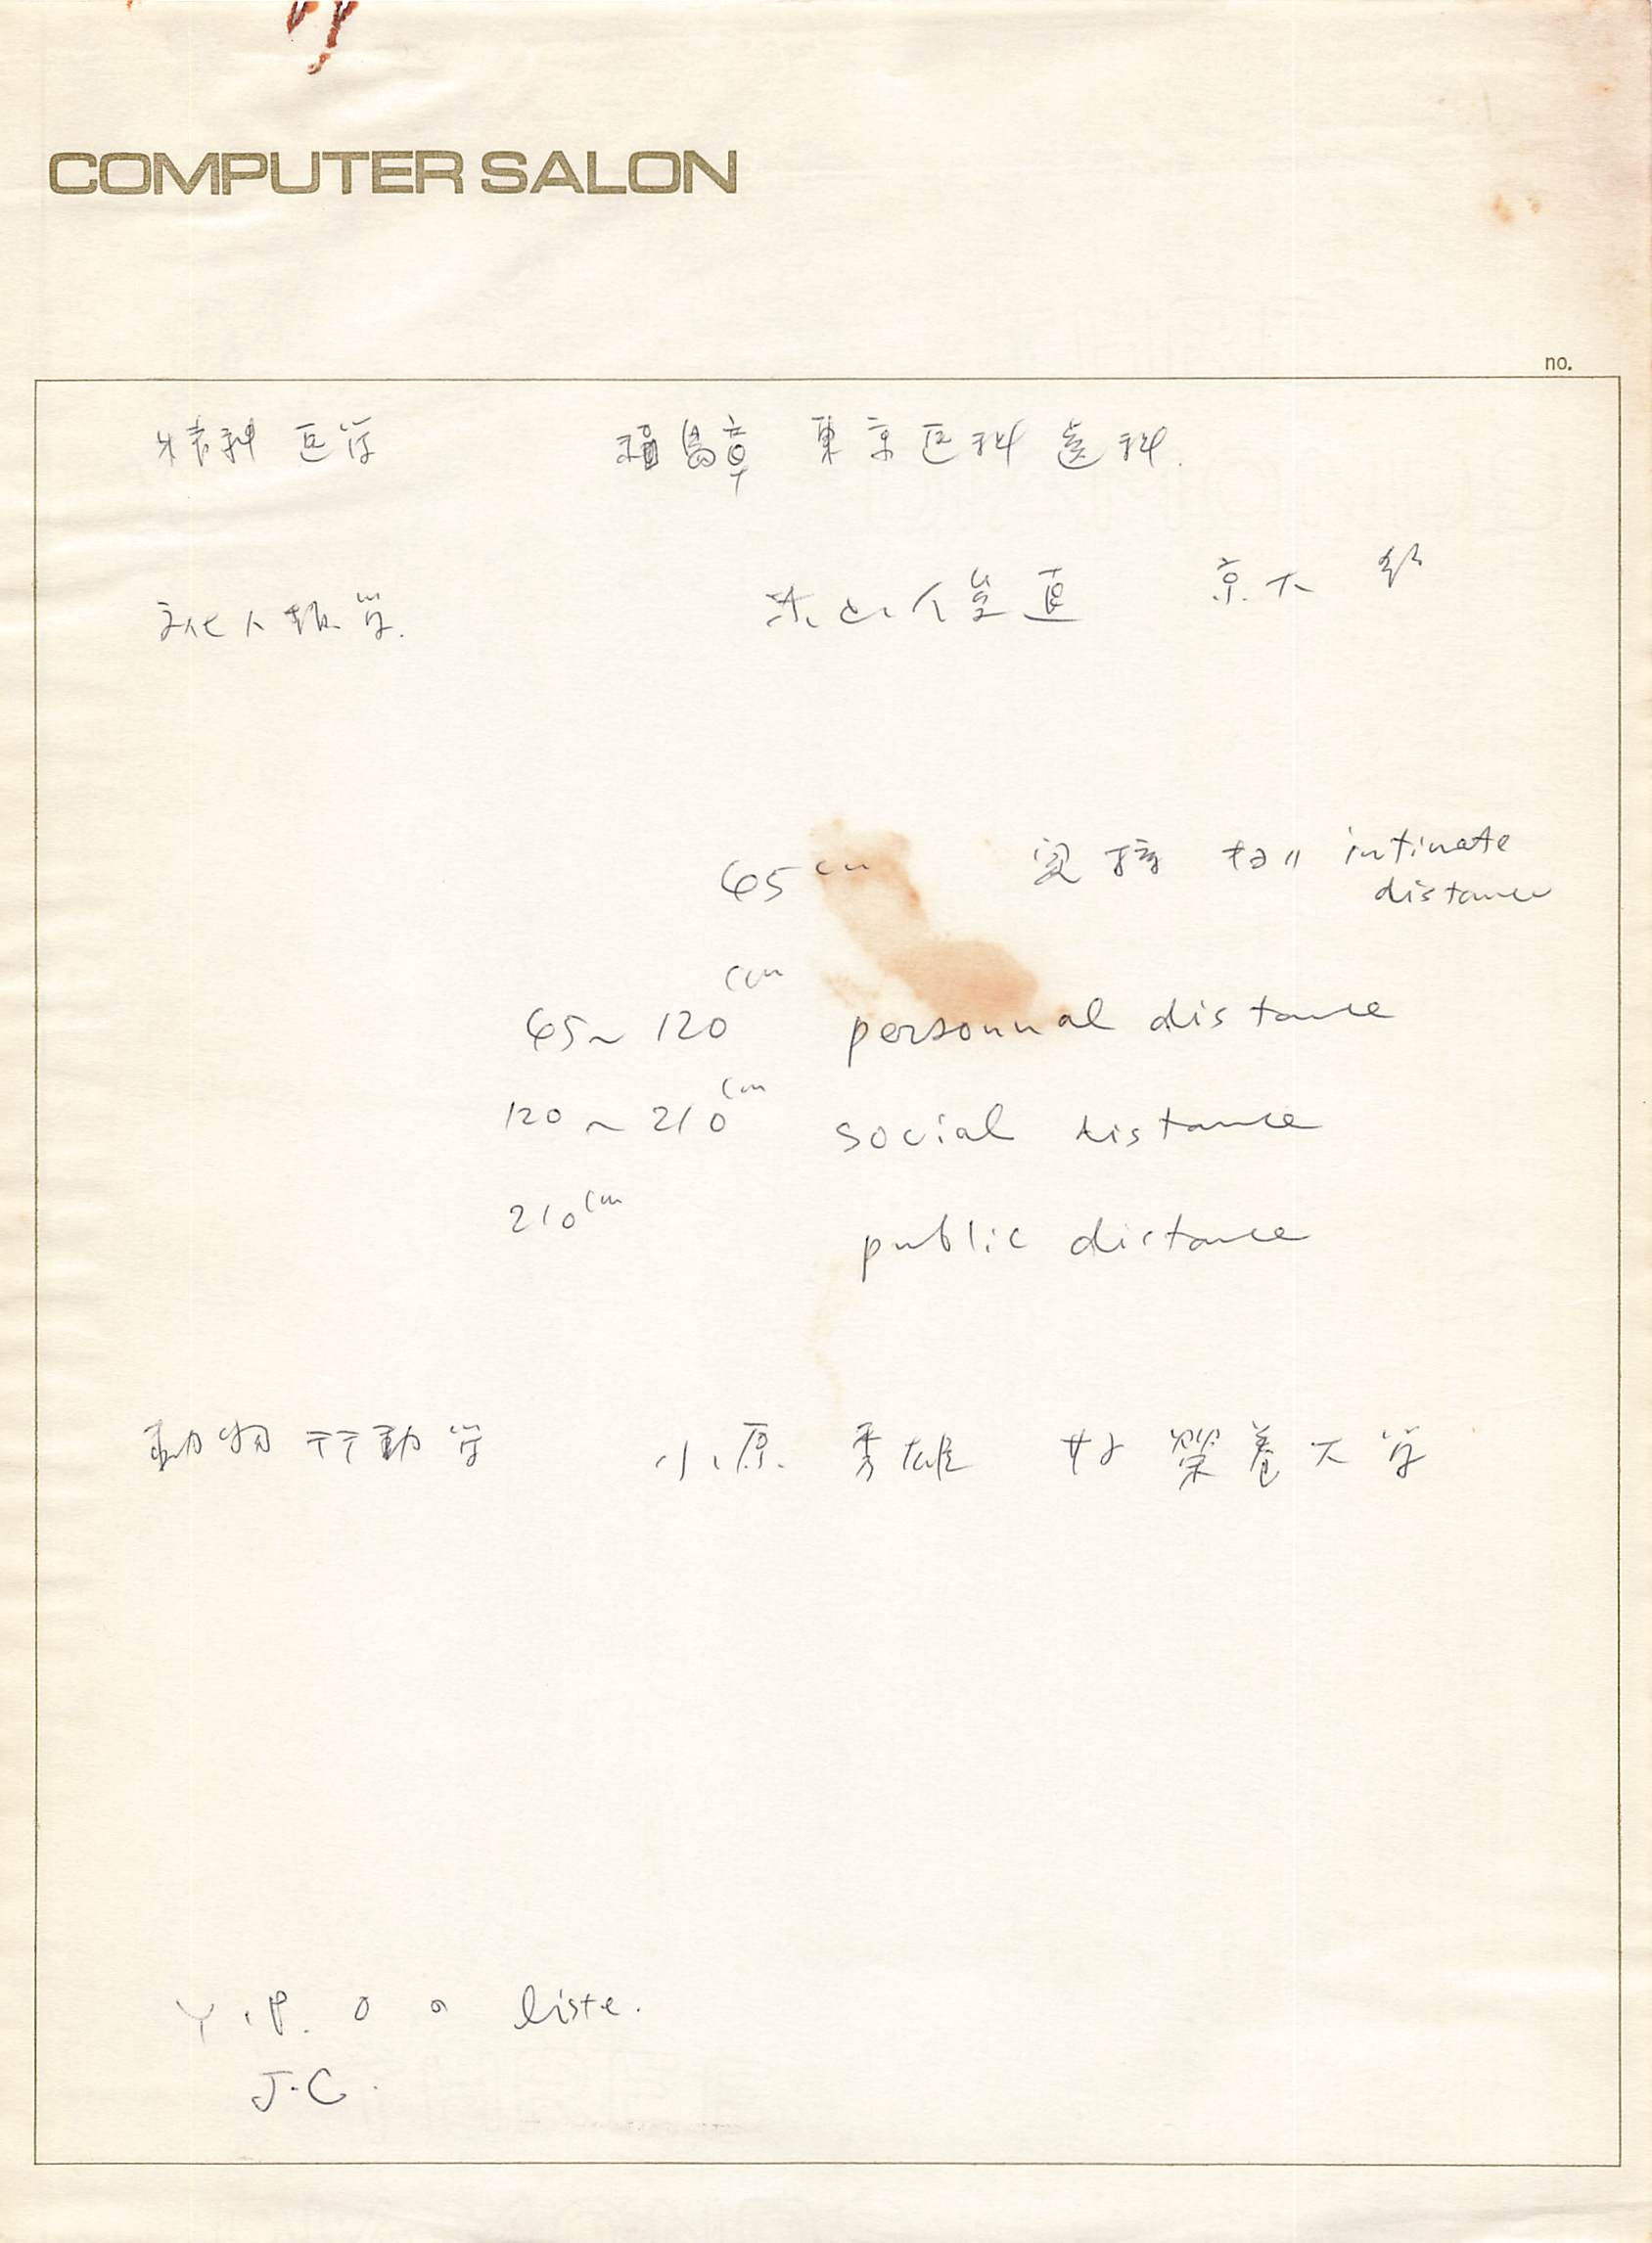 COMPUTER SALON
no.
精神医学 福島章 東京医科歯科.
文化人類学. 米山俊直 京大
65cm 密接 intimate
distance
cm
65~120 personnal distance
120~210cm social distance
210cm public distance
動物行動学 小原秀雄 女子栄養大学
Y.P. liste.
J.C.